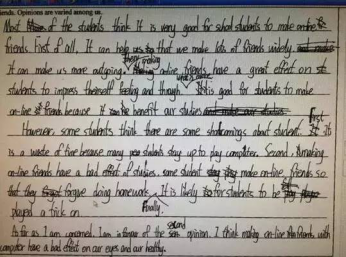 iends. Opinions are varied among us.
Most of the students think It is very good for school students to make online
friends. First of all, It can help us that we make lots of friends widely.
It can make us more outgoing. Then making online friends have a great effect on
students to impress their feeling and though. What's more It is good for students to make
on-line friends because It can benefit our studies
However, some students think there are some shortcomings about student. First It
is a waste of time because many stay up to play computer. Second, making
on-line friends have a bad effect of studies, some student make on-line friends so
that they forgive doing homework. Finally, It is likely for students to be
played a trick on
As far as I am concerned. I am in favour of the second opinion. I think making on-line friends with
computer have a bad effect on our eyes and our healthy.